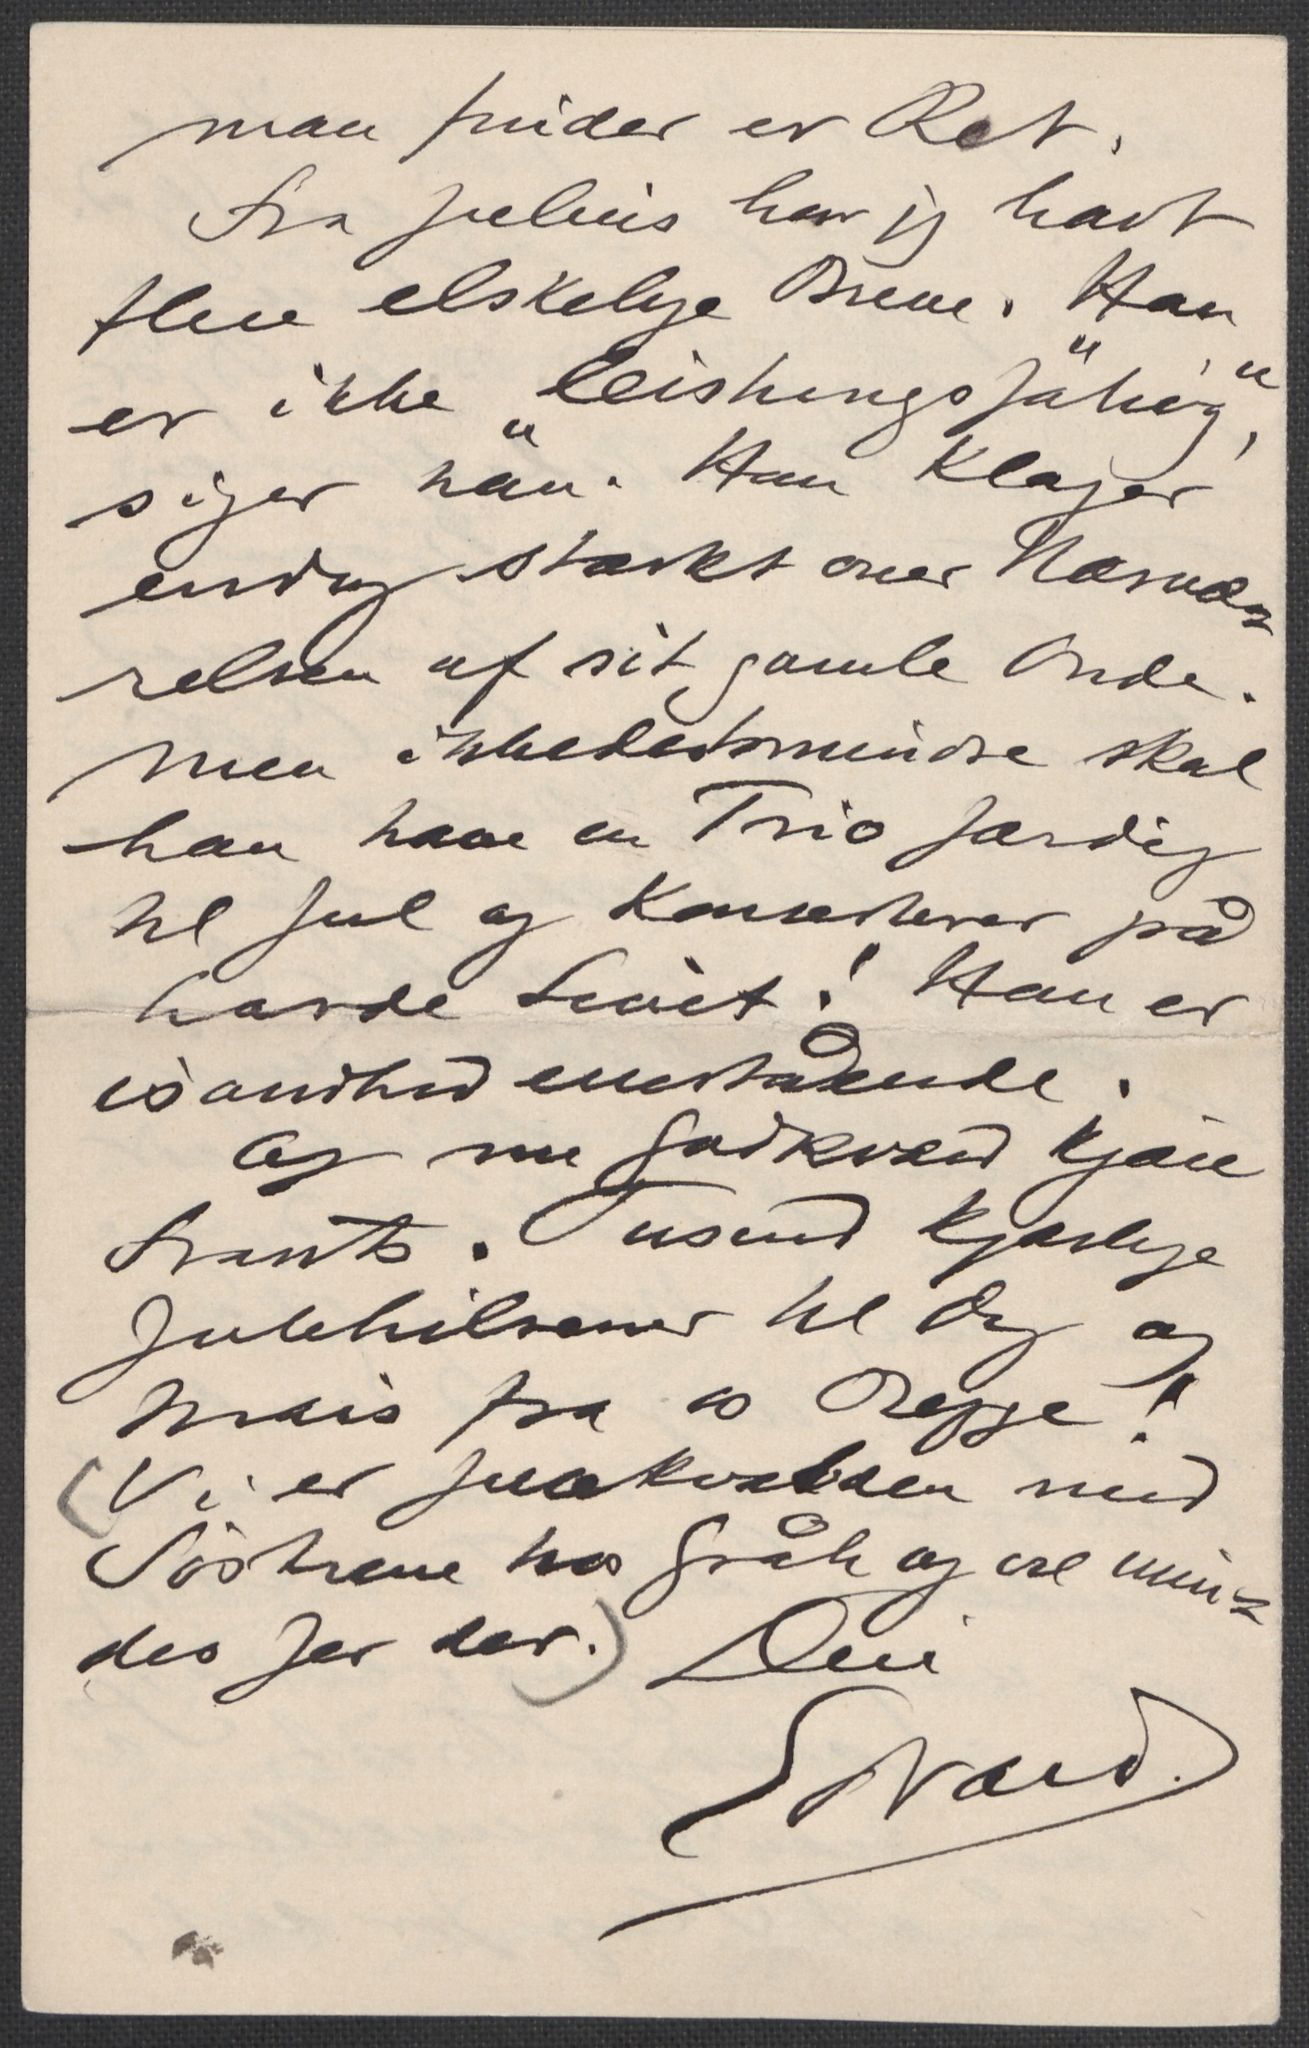 man finder er Ret.
Fra Julius har jeg havt
flere elskelige Breve. Han
er ikke „leistungsfähig",
siger han. Han klager
endog stærkt over Nærvæ-
relsen af sit gamle Onde.
Men ikkedestomindre skal
han have en Trio færdig
til Jul og Koncerterer på
harde Livet! Han er
isandhed enestående.
Og nu Godkvæld kjære
Frants. Tusend kjærlige
Julehilsener til Dig og
Marie fra os Begge!
(Vi er Julekvælden med
Søstrene hos Gråh og vil min-
des Jer der.) Din
Edvard.